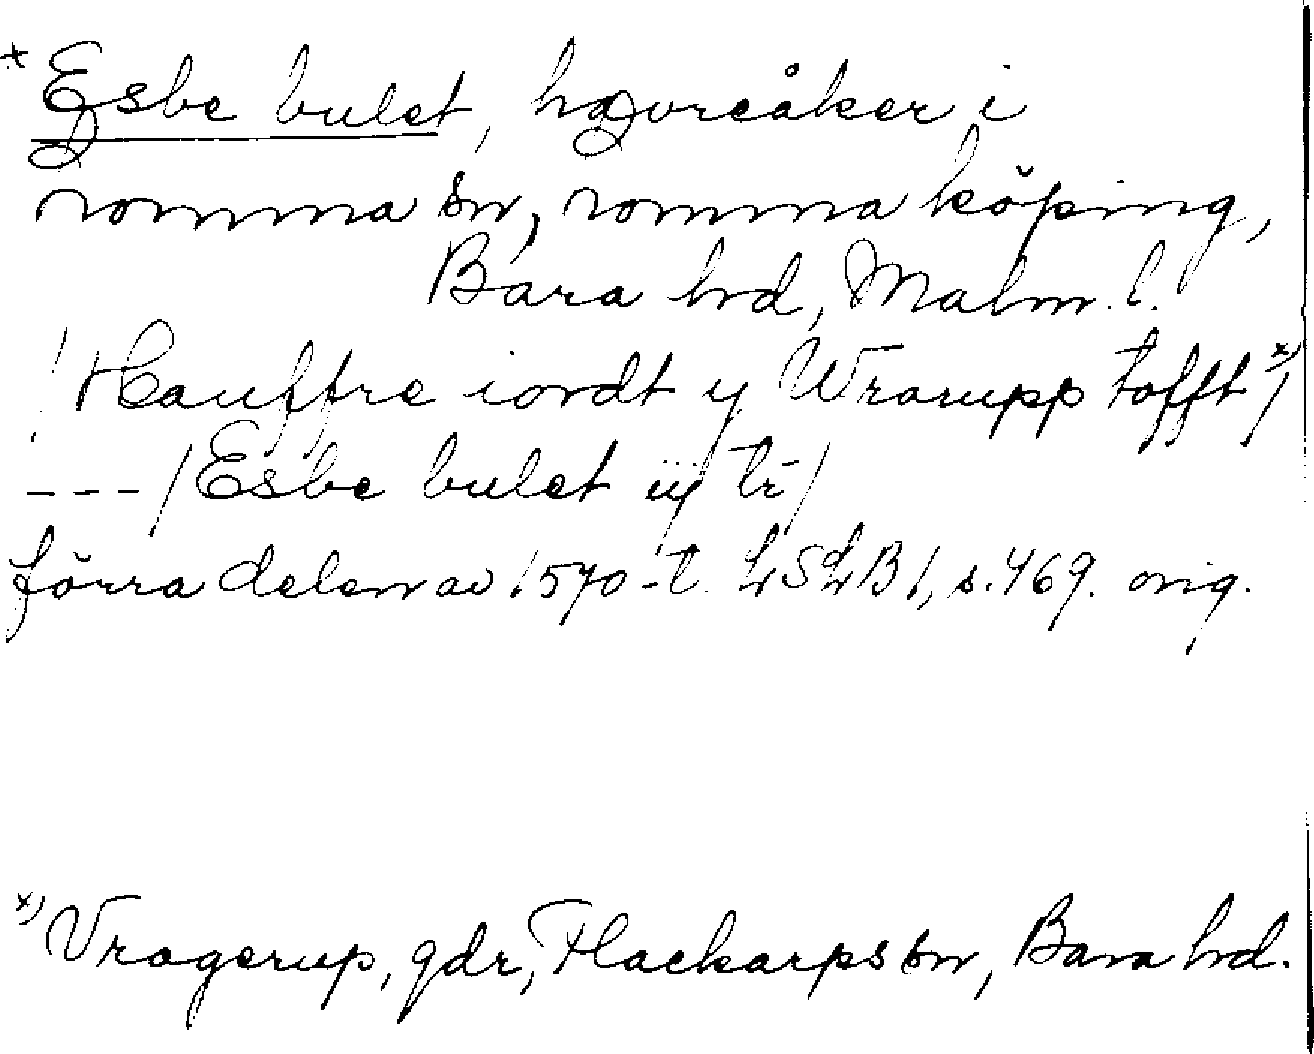 * Esbe bulet, havreåker i
romma sn, romma köping,
Bara hd, Malm. l.
/ Hauffre iordt y Wrarupp tofft x)/
--- / Esbe bulet iij tr /
förra delen av 1570-t. LSLB 1, s. 469. orig.
x) Vragerup, gdr, Flackarps sn, Bara hd.